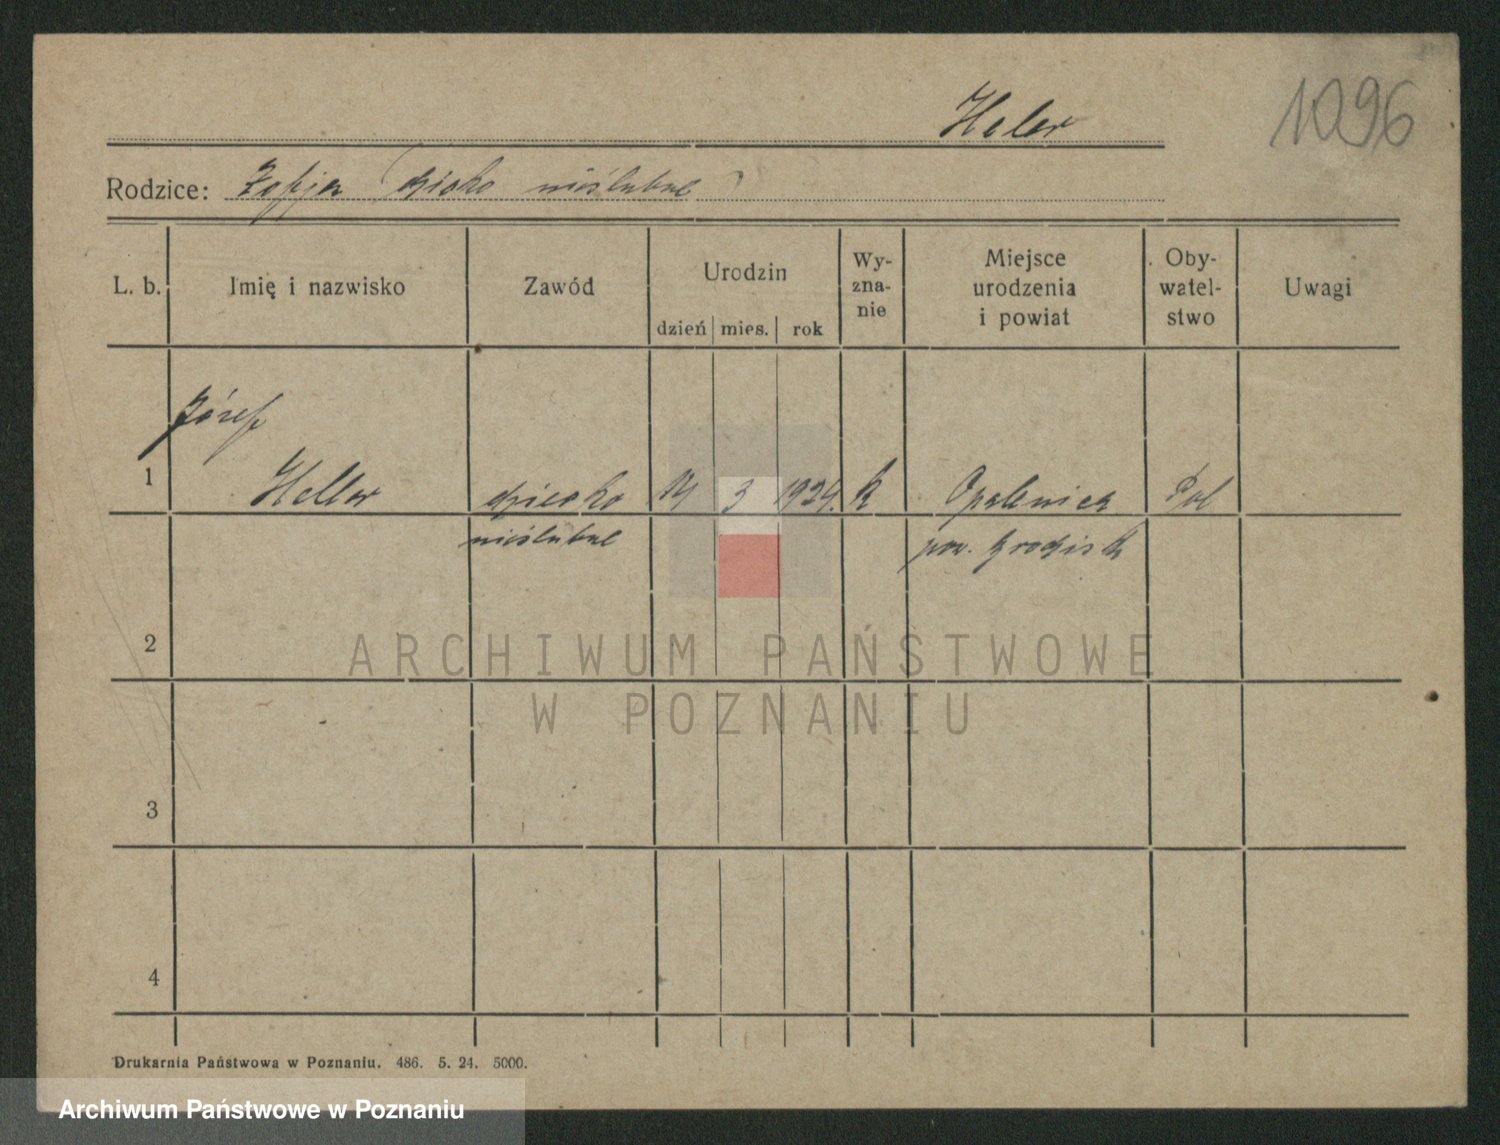 Heler
1096
Rodzice: Zofja (dziecko nieślubne)
L. b. Imię i nazwisko Zawód Urodzin dzień mies. rok Wy-zna-nie Miejsce urodzenia i powiat Oby-watel-stwo Uwagi
Józef
1 Heller dziecko 3 1924. k Opalenica Pol
nieślubne pow. Grodzisk
2
ARCHIWUM PAŃSTWOWE
W POZNANIU
3
4
Drukarnia Państwowa w Poznaniu. 486. 5. 24. 5000.
Archiwum Państwowe w Poznaniu